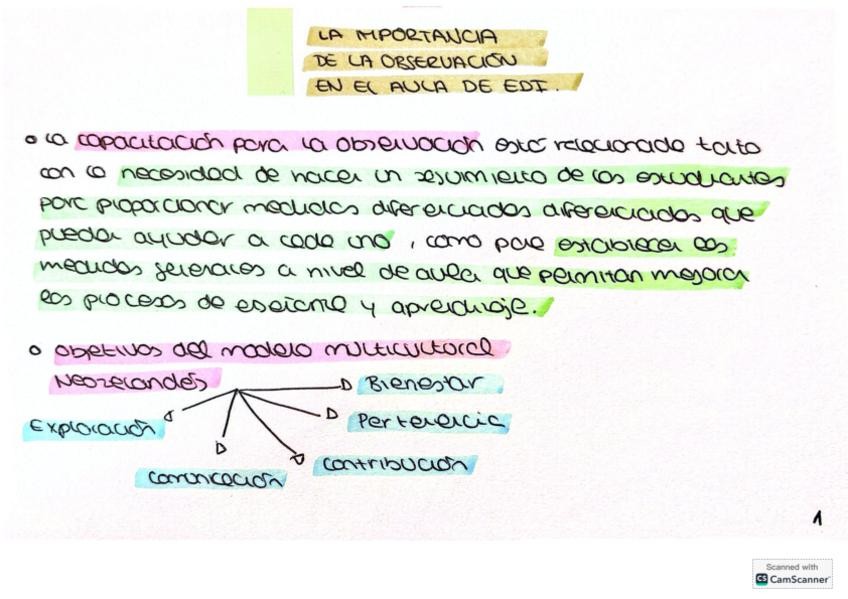 LA IMPORTANCIA
DE LA OBSERVACIÓN
EN EL AULA DE EDI.
• La capacitación para la observación está relacionada tanto
con la necesidad de hacer un seguimiento de los estudiantes
para proporcionar medidas diferenciadas diferenciadas que
puedan ayudar a cada uno, como para establecer las
medidas generales a nivel de aula que permitan mejorar
los procesos de enseñanza y aprendizaje.
• Objetivos del modelo multicultural
Neozelandés
Bienestar
Exploración
Pertenencia
Comunicación
Contribución
1
Scanned with
CS CamScanner